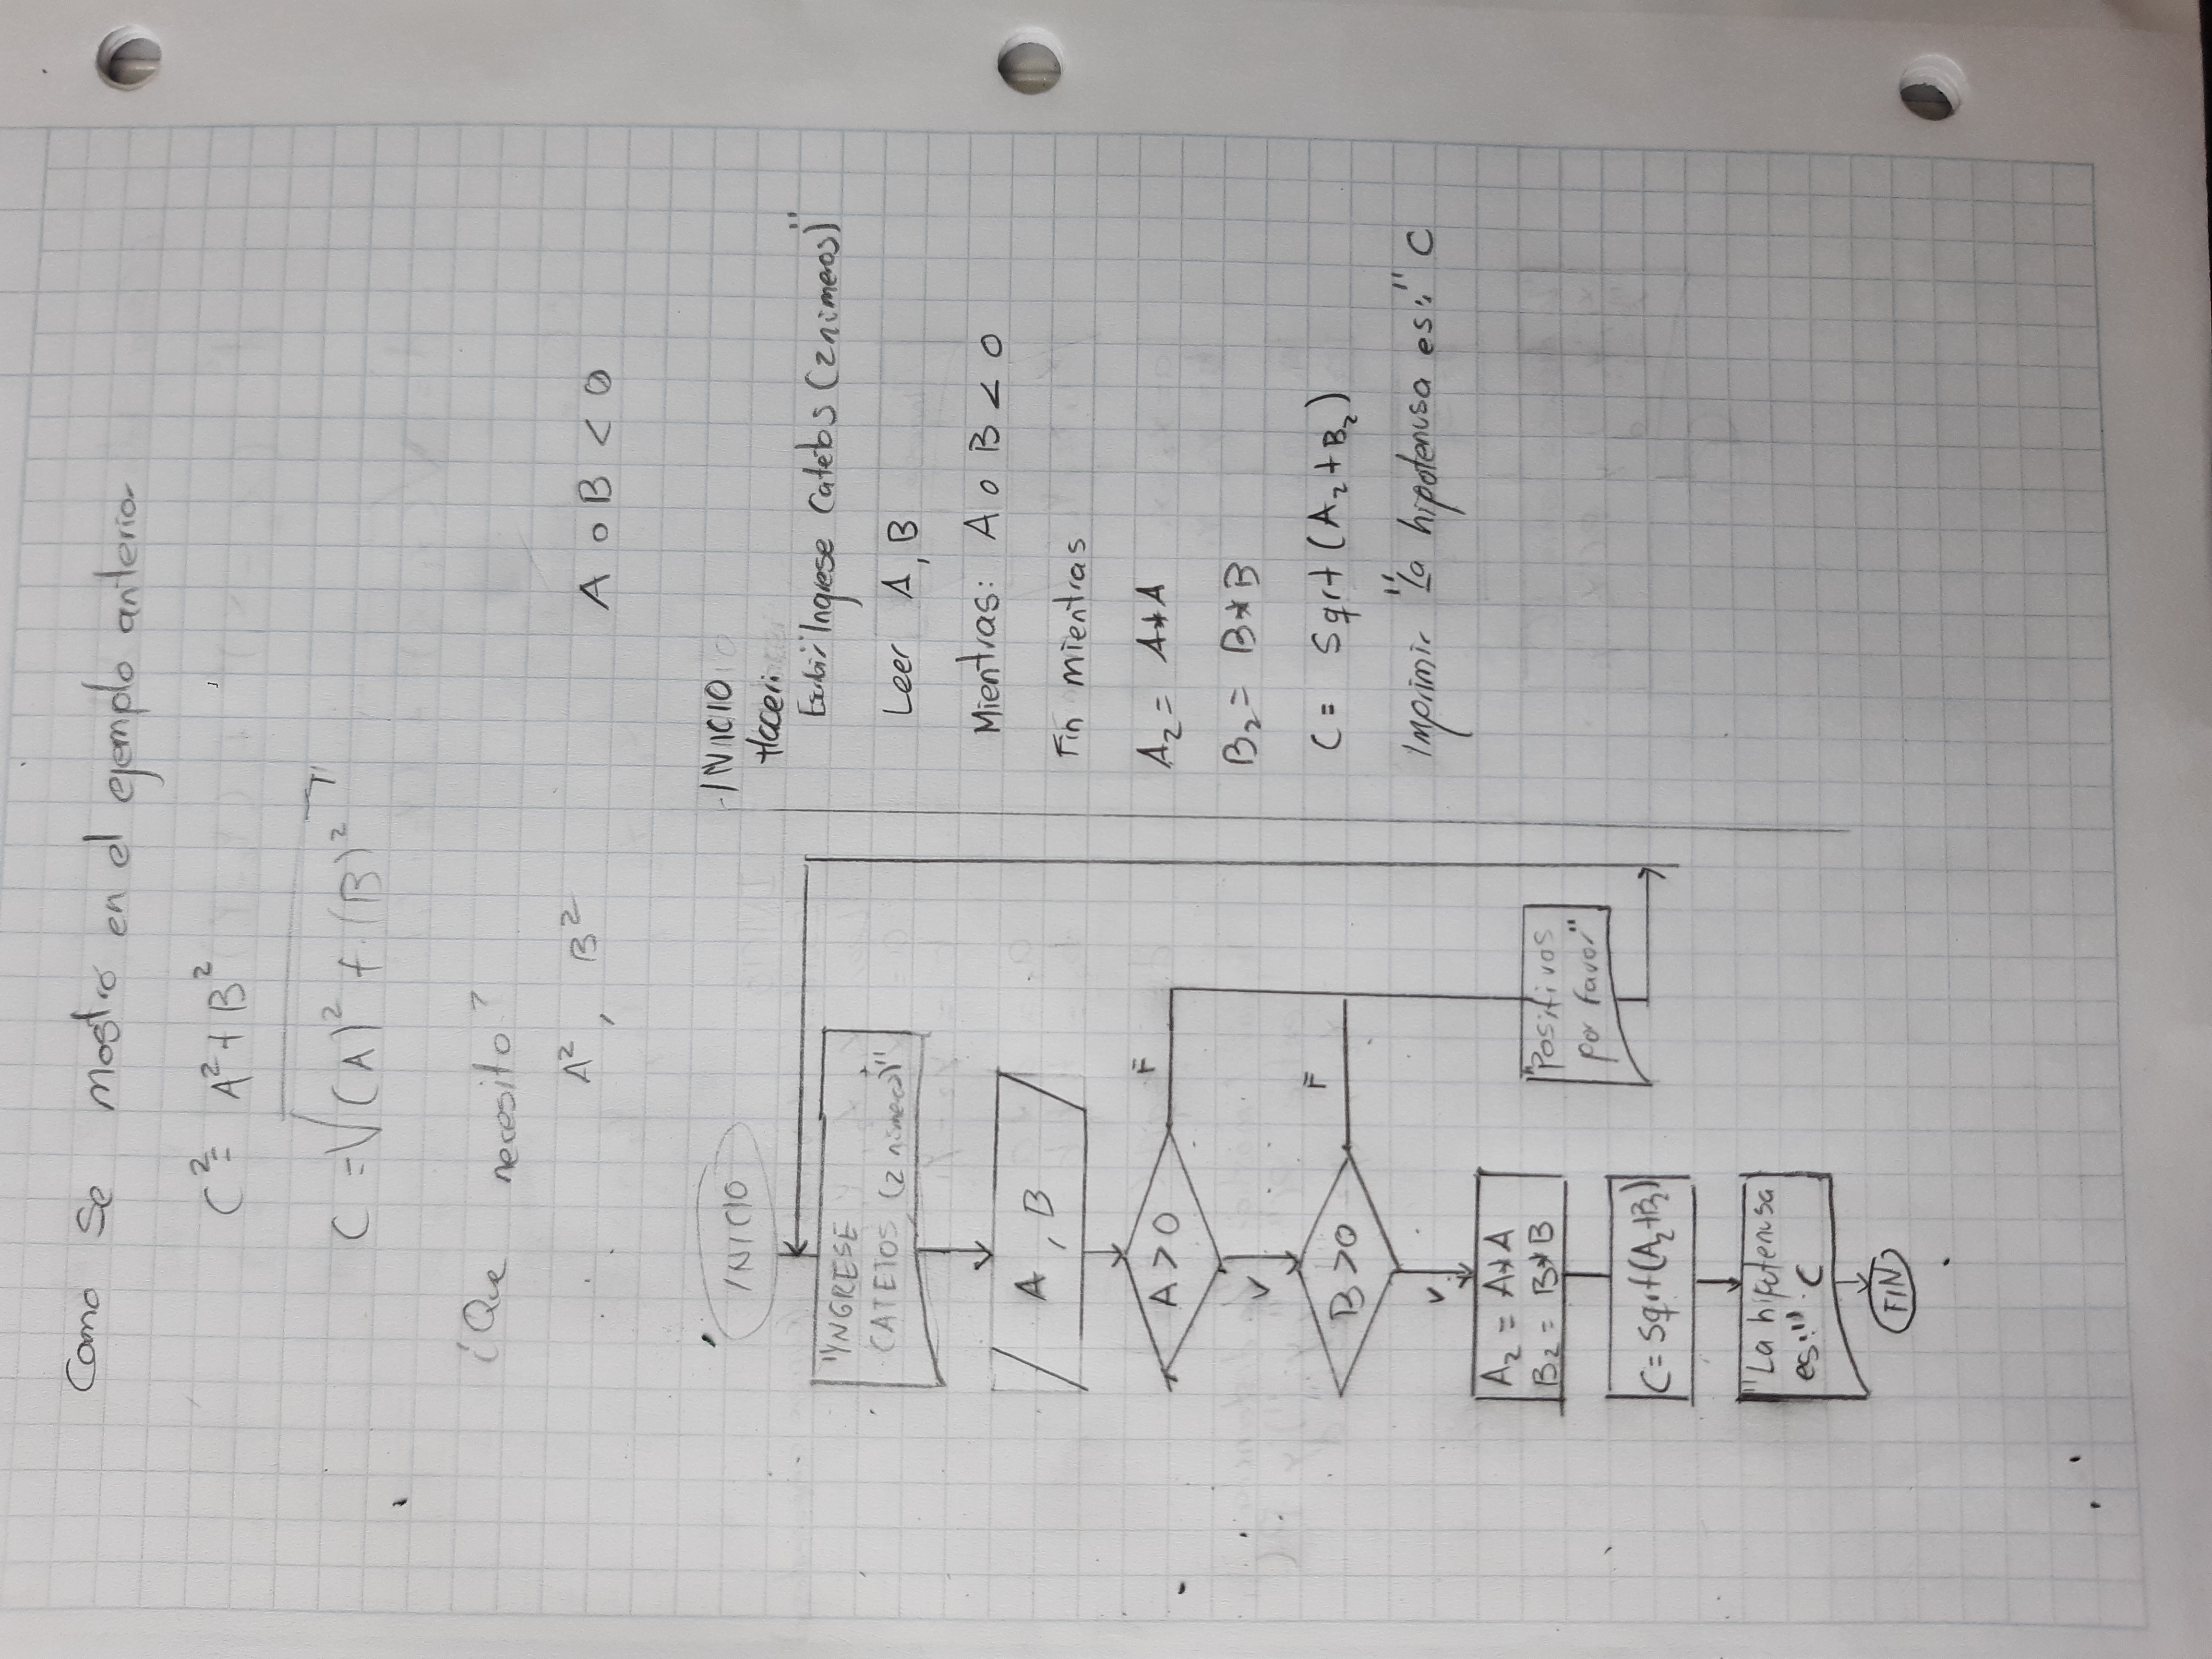 Como se mostró en el ejemplo anterior
C² = A² + B²
C = √(A)² + (B)²
¿Que necesito?
A² , B²
A o B < 0
INICIO
"INGRESE
CATETOS (2 números)"
A , B
A > 0
F
V
B > 0
F
V
A₂ = A*A
B₂ = B*B
"Positivos
por favor"
C = sqrt(A₂+B₂)
"La hipotenusa
es:" C
FIN
INICIO
Hacer:
Escribir "Ingrese Catetos (2 números)"
Leer A, B
Mientras: A o B < 0
Fin mientras
A₂ = A*A
B₂ = B*B
C = Sqrt (A₂+B₂)
Imprimir "La hipotenusa es:" C